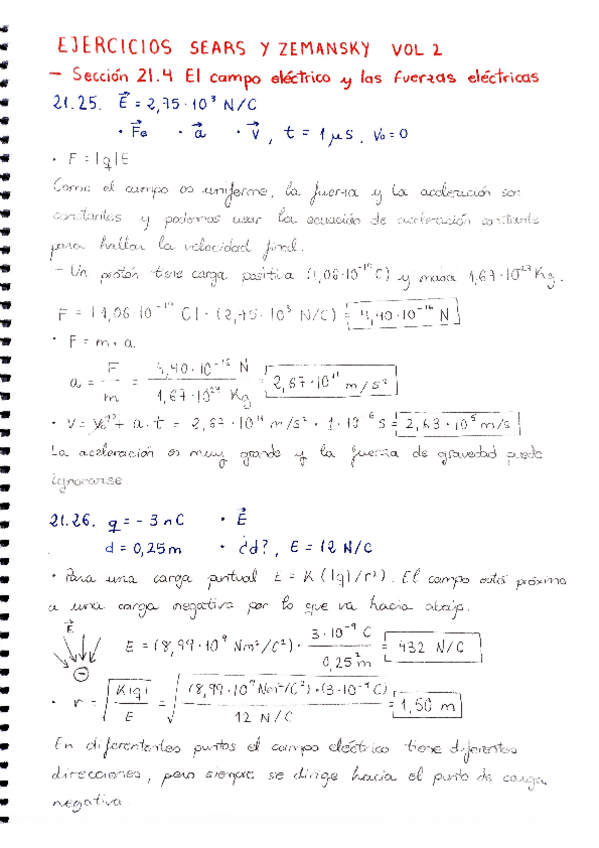 EJERCICIOS SEARS Y ZEMANSKY VOL 2
- Sección 21.4 El campo eléctrico y las fuerzas eléctricas
21.25. E⃗ = 2,75·10³ N/C
· F⃗e · a⃗ · v⃗, t = 1 μs. V₀=0
· F = |q|E
Como el campo es uniforme, la fuerza y la aceleración son
constantes y podemos usar la ecuación de aceleración constante
para hallar la velocidad final.
- Un protón tiene carga positiva (1,06·10⁻¹⁹ C) y masa 1,67·10⁻²⁷ Kg.
F = |1,06·10⁻¹⁹ C| · (2,75·10³ N/C) = 4,40·10⁻¹⁶ N
· F = m·a
a = F/m = 4,40·10⁻¹⁶ N / 1,67·10⁻²⁷ Kg = 2,67·10¹¹ m/s²
· V = V₀ + a·t = 2,67·10¹¹ m/s² · 1·10⁻⁶ s = 2,63·10⁵ m/s
La aceleración es muy grande y la fuerza de gravedad puede
ignorarse.
21.26. q = -3 nC · E⃗
d = 0,25 m · ¿d?, E = 12 N/C
· Para una carga puntual E = K(|q|/r²). El campo está próximo
a una carga negativa por lo que va hacia abajo.
E⃗
E = (8,99·10⁹ Nm²/C²) · 3·10⁻⁹ C / 0,25² m = 432 N/C
· r = √(K|q| / E) = √((8,99·10⁹ Nm²/C²)·(3·10⁻⁹ C) / 12 N/C) = 1,50 m
En diferentes puntos el campo eléctrico tiene diferentes
direcciones, pero siempre se dirige hacia el punto de carga
negativa.